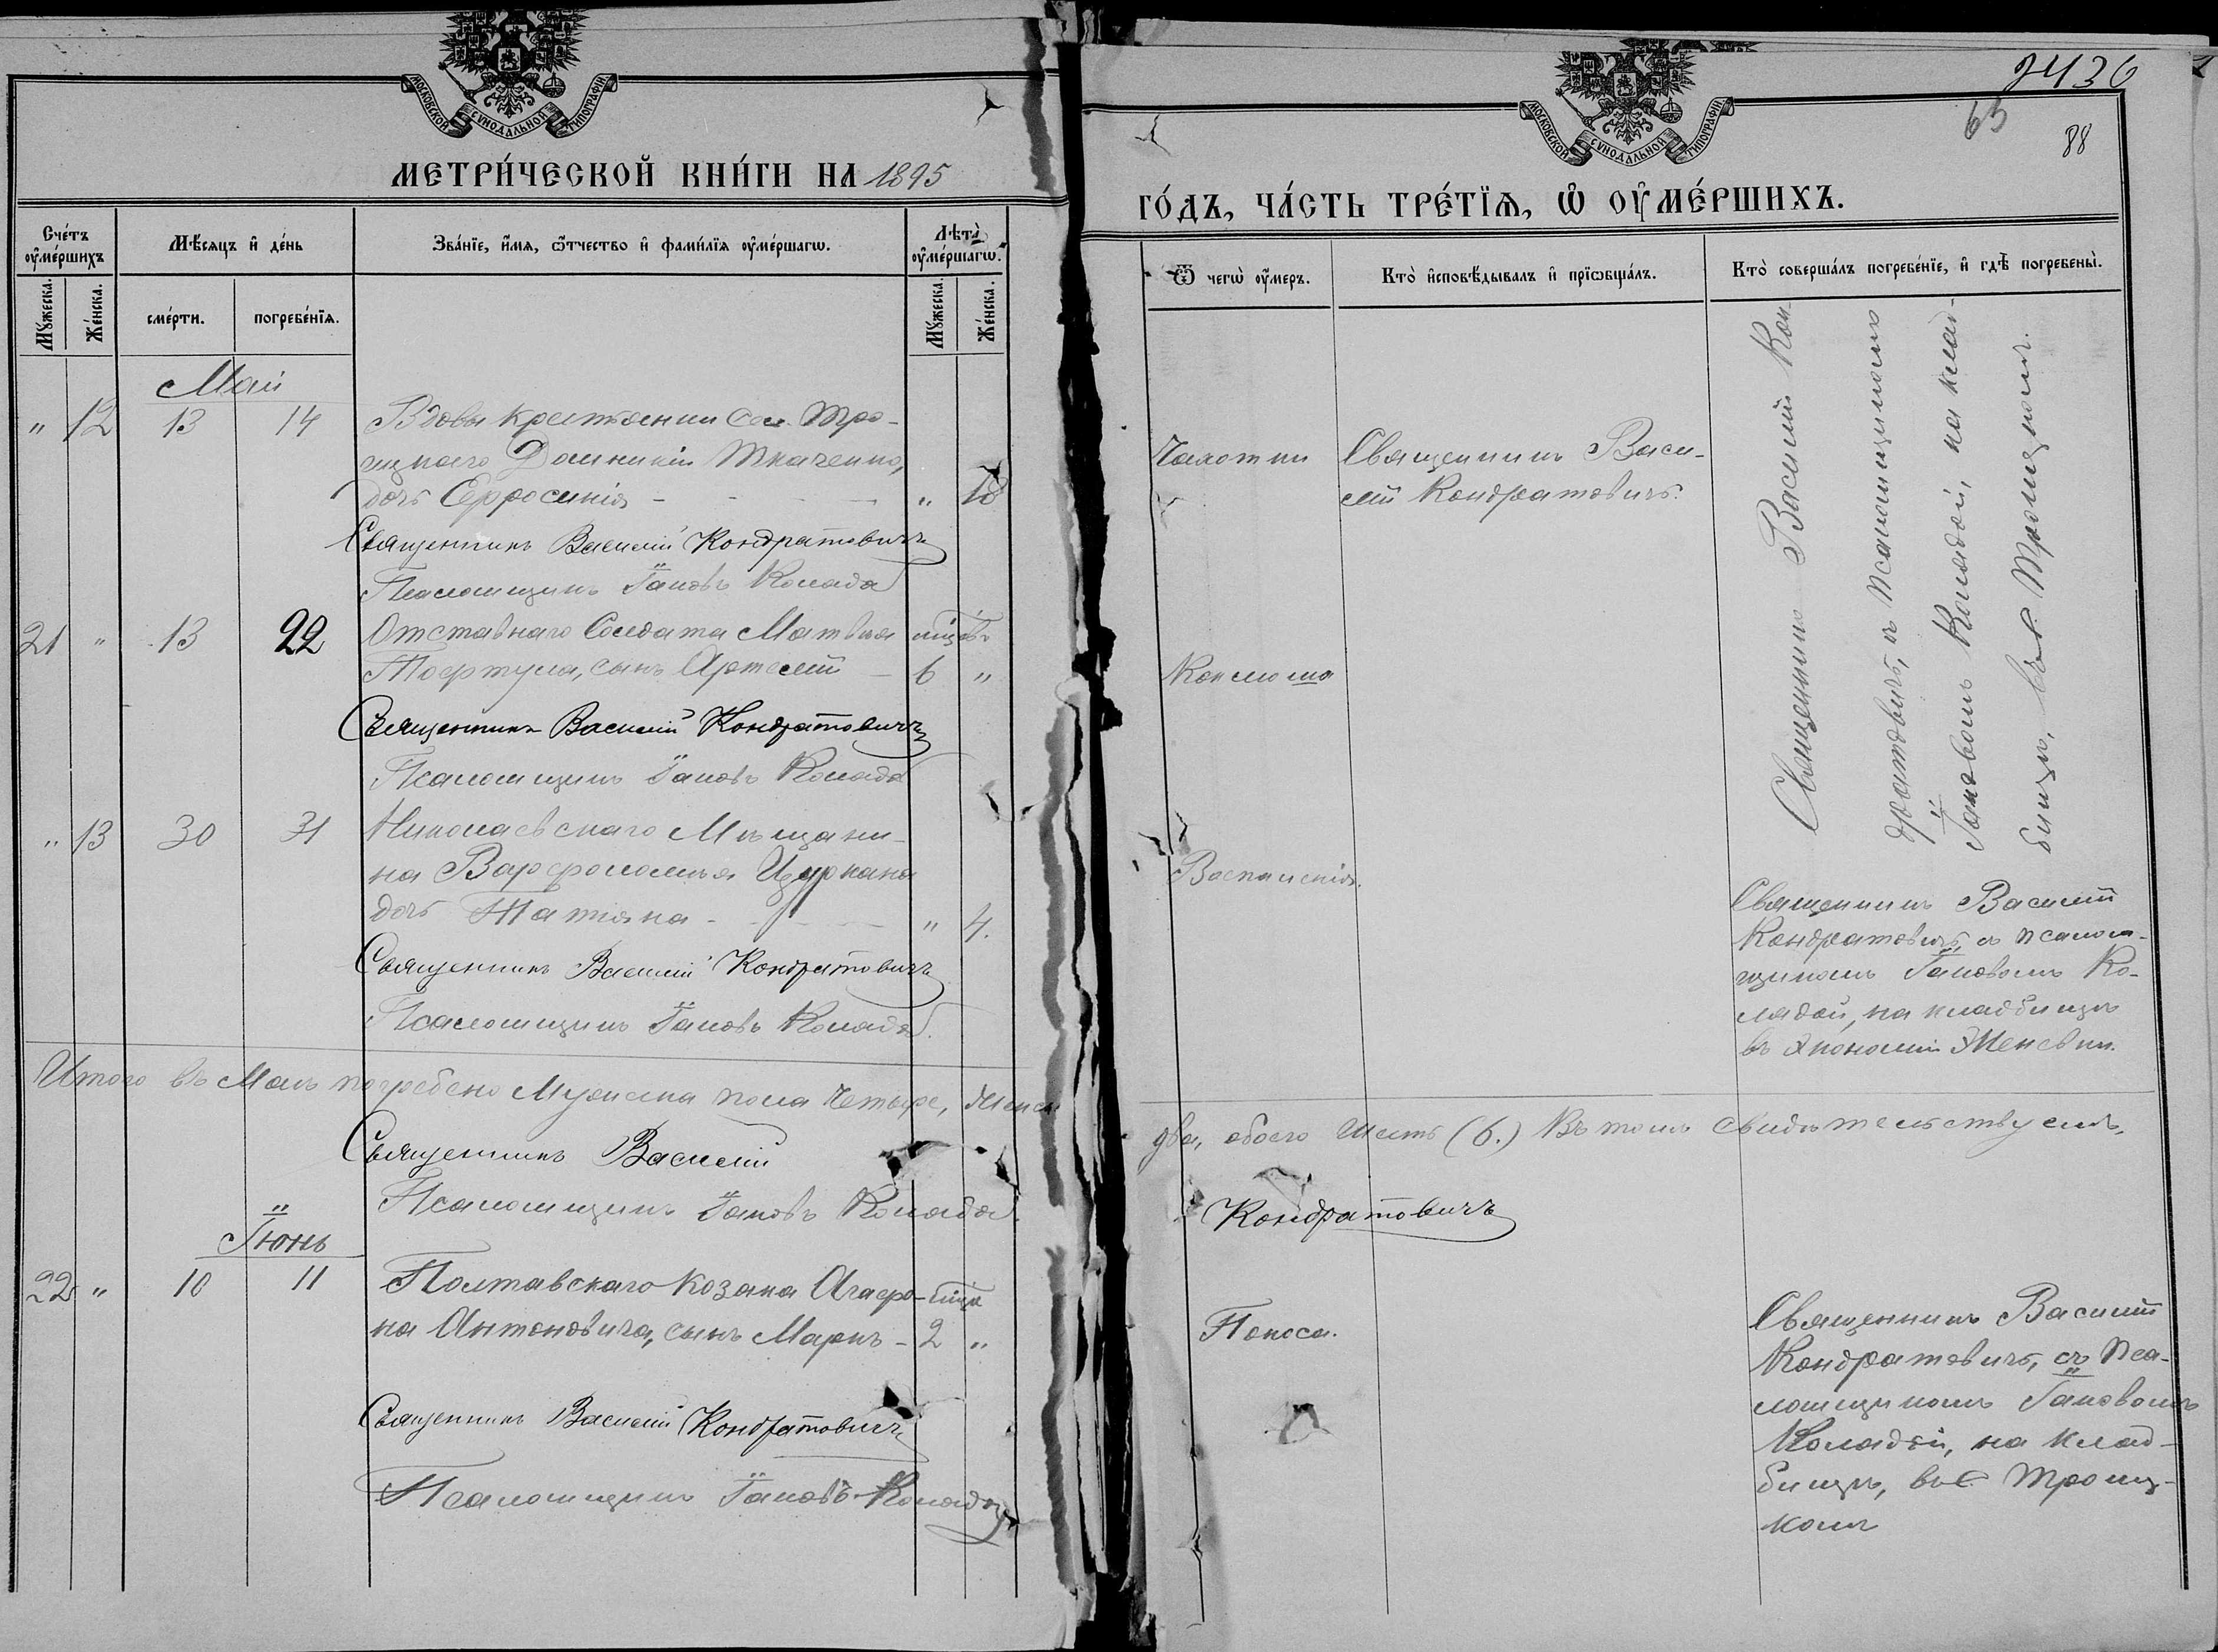 МОСКОВСКОЙ СѴНОДАЛЬНОЙ ТИПОГРАФІИ
МЕТРИ́ЧЕСКОЙ КНИ́ГИ НА 1895
Сче́тъ оу҆ме́ршихъ
Мѣ́сяцъ и҆ де́нь
Зва́нїе, и҆́мя, ѻ҆́тчество и҆ фами́лїя оу҆ме́ршагѡ.
Лѣ́та оу҆ме́ршагѡ.
Мꙋ́жеска.
Же́нска.
сме́рти.
погребе́нїя.
Мꙋ́жеска.
Же́нска.
Май
" 12 13 14 Вдовы крестьянки сел. Тро-
ицкаго Домникіи Ткаченко,
дочь Ефросинія - " 18
Священникъ Василій Кондратовичъ
Псаломщикъ Іаковъ Колада
21 " 13 22 Отставнаго Солдата Матвѣя мцѣвъ
сынъ Артемій - 6 "
Священникъ Василій Кондратовичъ
Псаломщикъ Іаковъ Колада
" 13 30 31 Николаевскаго Мѣщани-
на Варфоломѣя Цуркана
дочь Татіана - " 4.
Священникъ Василій Кондратовичъ
Псаломщикъ Іаковъ Колада.
Итого въ Маѣ погребено Мужеска пола четыре, Женска
Священникъ Василій
Псаломщикъ Іаковъ Колада.
Іюнь
22 " 10 11 Полтавскаго козака Агафо-
на Антоновича, сынъ Маркъ - 2 "
Священникъ Василій Кондратовичъ
Псаломщикъ Іаковъ Колада
МОСКОВСКОЙ СѴНОДАЛЬНОЙ ТИПОГРАФІИ
2436
65
88
ГО́ДЪ, ЧА́СТЬ ТРЕ́ТЇѦ, Ѽ ОУ҆МЕ́РШИХЪ.
Ѿ чегѡ̀ оу҆́меръ.
Кто̀ и҆сповѣ́дывалъ и҆ прїѡбща́лъ.
Кто̀ соверша́лъ погребе́нїе, и҆ гдѣ̀ погребены̀.
Чахотки Священникъ Васи-
лій Кондратовичъ.
Священникъ Василій Кон-
дратовичъ, съ псаломщикомъ
Іаковомъ Коладой, на клад-
бищѣ, въ с. Троицкомъ.
Коклюша
Воспаленія.
Священникъ Василій
Кондратовичъ, съ псалом-
щикомъ Іаковомъ Ко-
лядой, на кладбищѣ
въ Экономіи
два, обоего шесть (6.) Въ томъ свидѣтельствуемъ,
Кондратовичъ
Поноса.
Священникъ Василій
Кондратовичъ, съ Пса-
ломщикомъ Іаковомъ
Коладой, на клад-
бищѣ, въ с. Троиц-
комъ